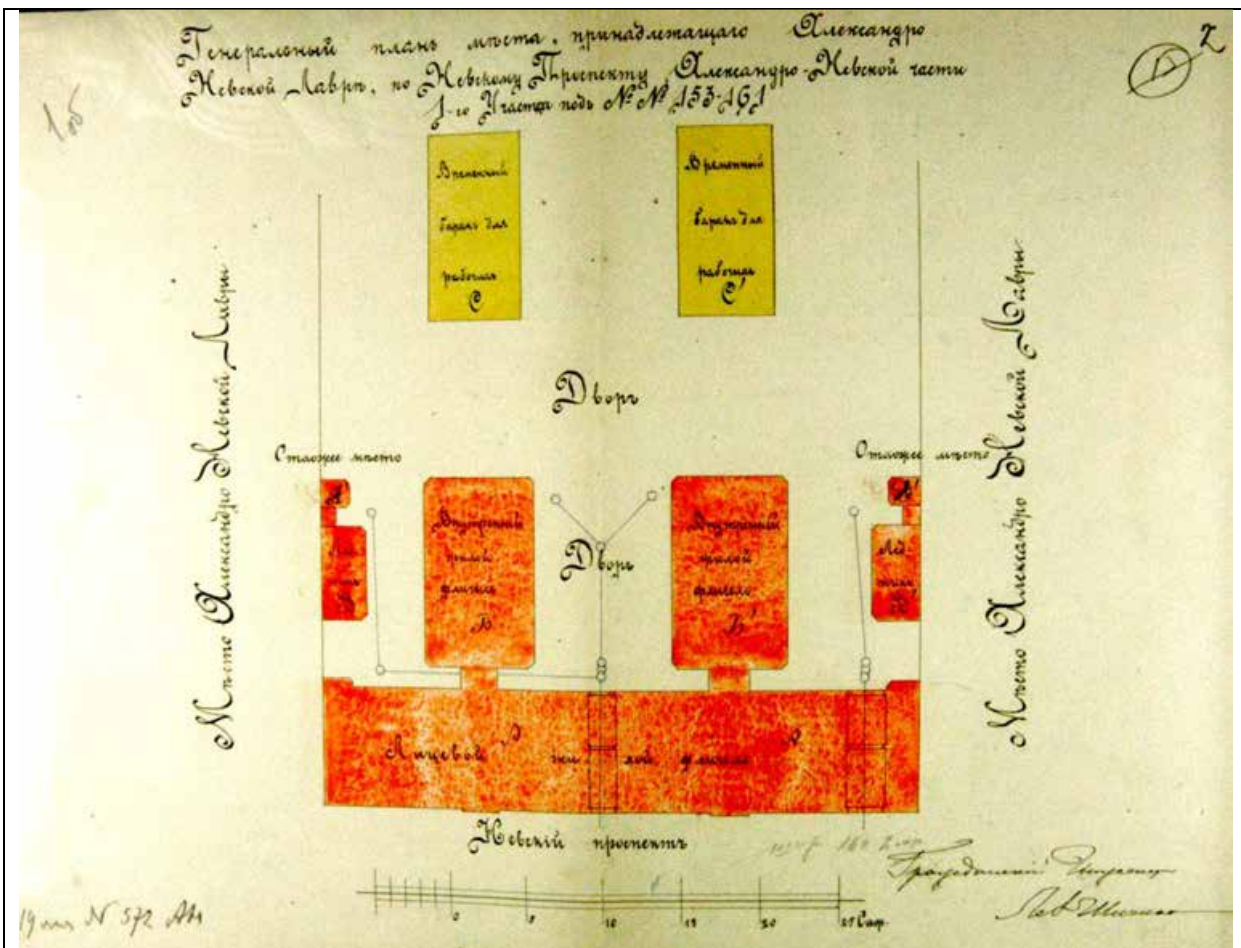 Генеральный планъ мѣста, принадлежащаго Александро
Невской Лаврѣ, по Невскому Проспекту, Александро-Невской части
1-го Участка подъ №№ 153-161
2
1об
Временный
баракъ для
рабочихъ
С
Временный
баракъ для
рабочихъ
С'
Мѣсто Александро Невской Лавры
Мѣсто Александро Невской Лавры
Дворъ
Отхожее мѣсто
Отхожее мѣсто
Внутренний
жилой
флигель
Б
Дворъ
Внутренний
жилой
флигель
Б'
Лед-
никъ
Лед-
никъ
Лицевой жилой флигель
Невскій проспектъ
0 5 10 15 20 25 Саж.
Гражданскій Инженеръ
№ 572